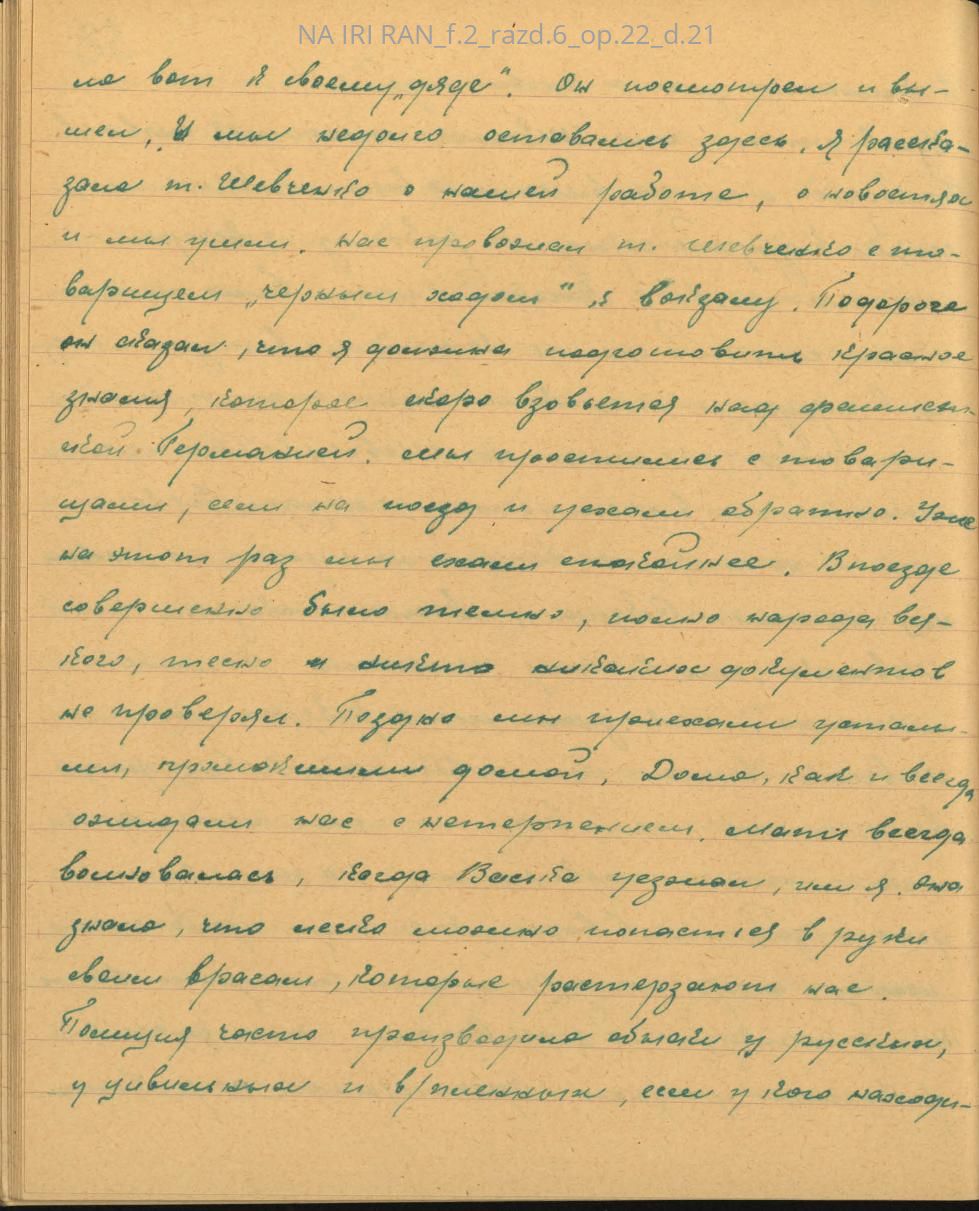 NA IRI RAN_f.2_razd.6_op.22_d.21
ла вот к своему „дяде“. Он посмотрел и вы-
шел, И мы недолго оставались здесь. Я расска-
зала т. Шевченко о нашей работе, о новостях
и мы ушли. Нас провожал т. Шевченко с то-
варищем „черным ходом“ к вокзалу. Подороге
он сказал, что я должна подготовить красное
знамя, которое скоро взовьется над фашист-
ской Германией. Мы простились с товари-
щами, сели на поезд и уехали обратно. Уже
на этот раз мы ехали спокойнее. В поезде
совершенно было темно, полно народа вся-
кого, тесно и никто никаких документов
не проверял. Поздно мы приехали усталы-
ми, промокшими домой. Дома, как и всегда
ожидали нас с нетерпением. Мать всегда
волновалась, когда Васька уезжал, или я. Она
знала, что легко можно попасться в руки
своим врагам, которые растерзают нас.
Полиция часто производила обыски у русских,
у цивильных и в/пленных, если у кого находи-